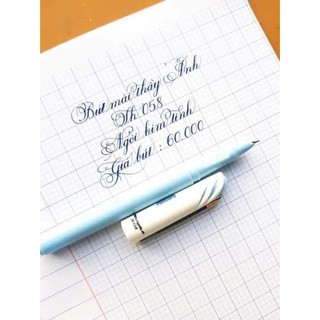 Bút mài thầy Ánh
Th 058
Ngòi kim tinh
Giá bút : 60.000